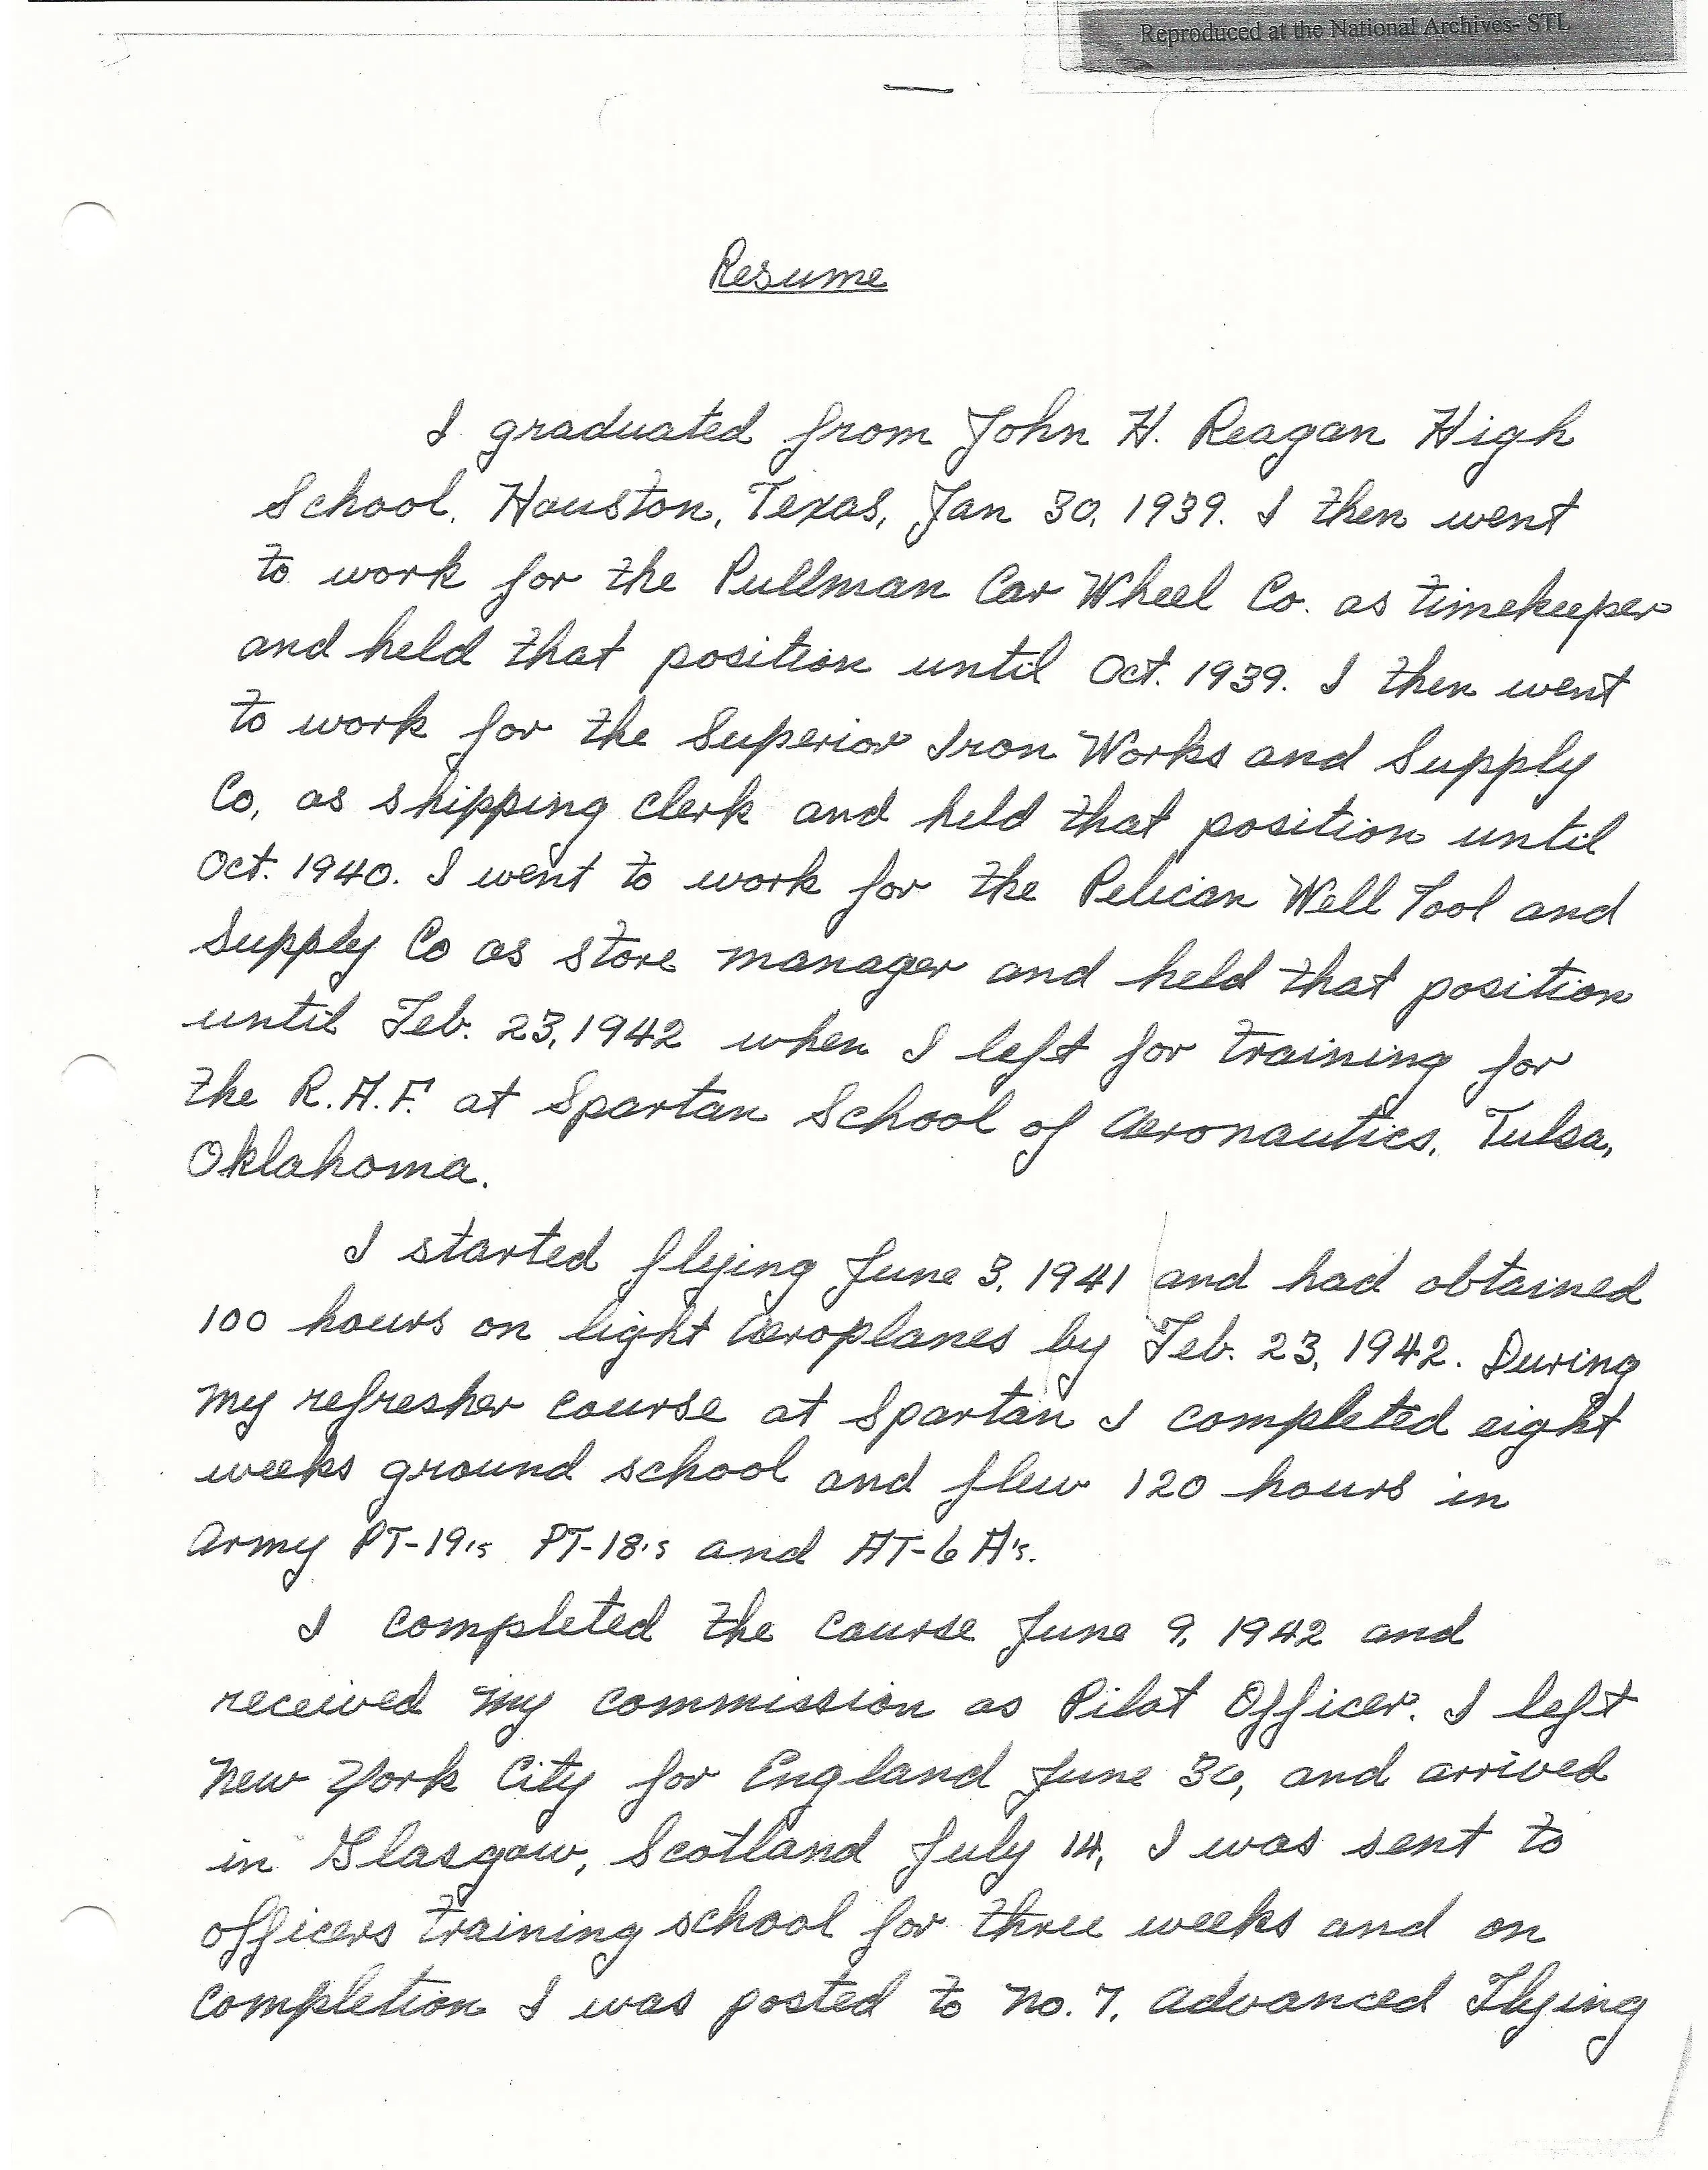 Reproduced at the National Archives- STL
Resume
I graduated from John H. Reagan High
School, Houston, Texas, Jan 30, 1939. I then went
to work for the Pullman Car Wheel Co. as timekeeper
and held that position until Oct. 1939. I then went
to work for the Superior Iron Works and Supply
Co, as shipping clerk and held that position until
Oct. 1940. I went to work for the Pelican Well Tool and
Supply Co as store manager and held that position
until Feb. 23, 1942 when I left for training for
the R.A.F. at Spartan School of Aeronautics, Tulsa,
Oklahoma.
I started flying June 3, 1941 and had obtained
100 hours on light aeroplanes by Feb. 23, 1942. During
my refresher course at Spartan I completed eight
weeks ground school and flew 120 hours in
Army PT-19's PT-18's and AT-6A's.
I completed the course June 9, 1942 and
received my commission as Pilot Officer. I left
New York City for England June 30, and arrived
in Glasgow, Scotland July 14, I was sent to
officers training school for three weeks and on
completion I was posted to No. 7, Advanced Flying